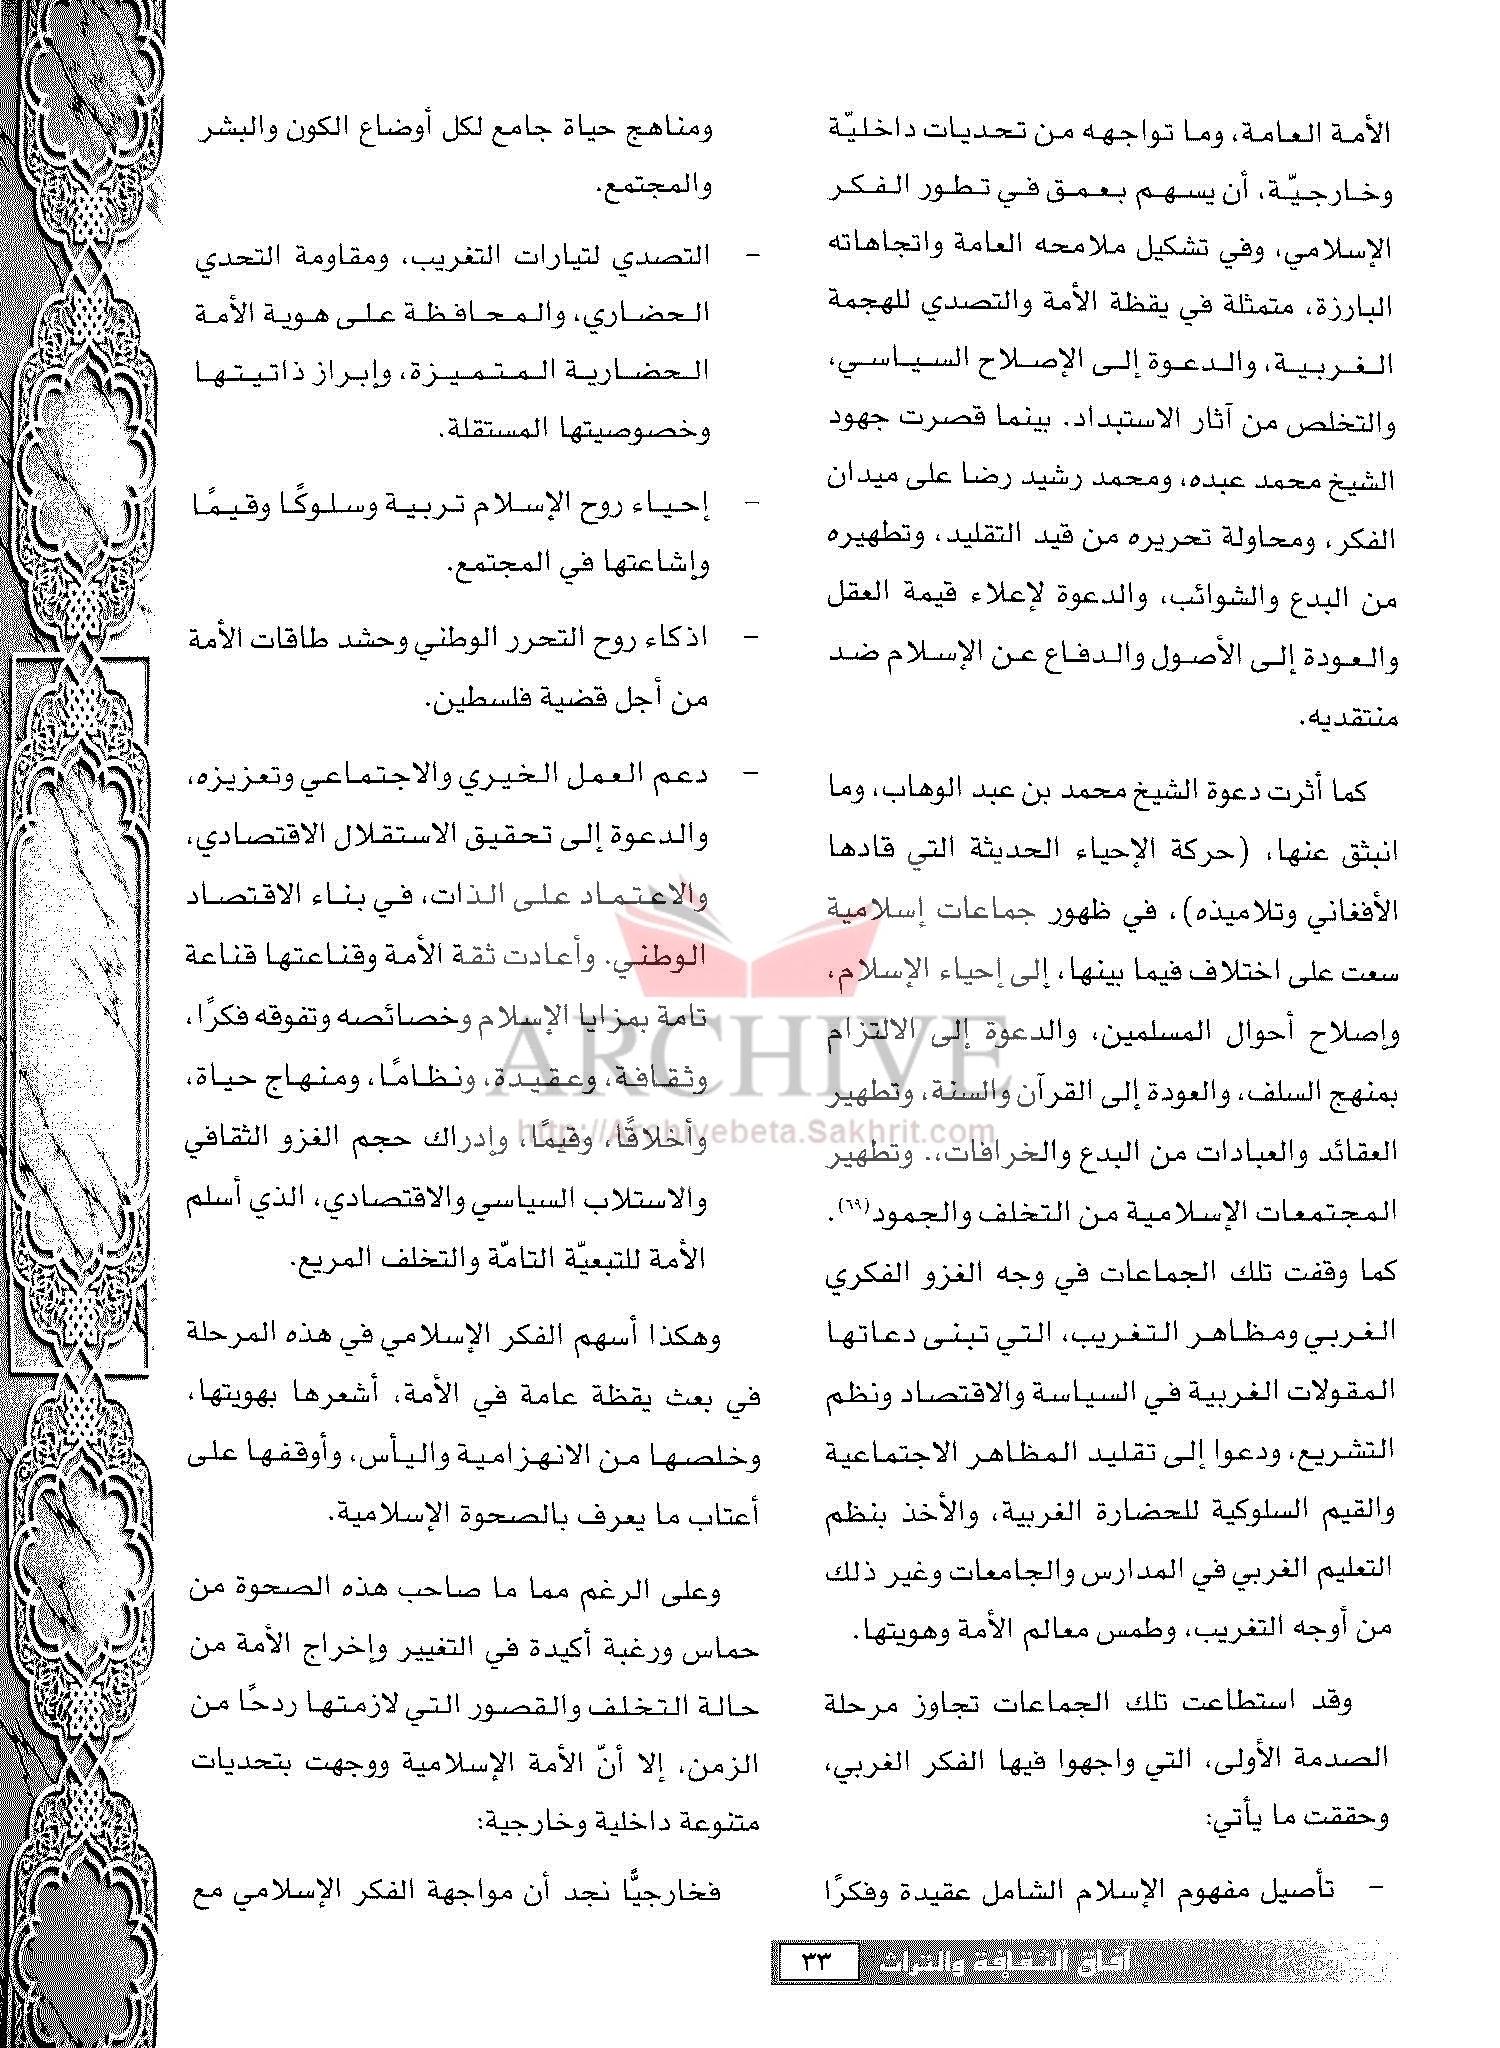 الأمة العامة، وما تواجهه من تحديات داخليّة
وخارجيّة، أن يسهم بعمق في تطور الفكر
الإسلامي، وفي تشكيل ملامحه العامة واتجاهاته
البارزة، متمثلة في يقظة الأمة والتصدي للهجمة
الغربية، والدعوة إلى الإصلاح السياسي،
والتخلص من آثار الاستبداد. بينما قصرت جهود
الشيخ محمد عبده، ومحمد رشيد رضا على ميدان
الفكر، ومحاولة تحريره من قيد التقليد، وتطهيره
من البدع والشوائب، والدعوة لإعلاء قيمة العقل
والعودة إلى الأصول والدفاع عن الإسلام ضد
منتقديه.
كما أثرت دعوة الشيخ محمد بن عبد الوهاب، وما
انبثق عنها، (حركة الإحياء الحديثة التي قادها
الأفغاني وتلاميذه)، في ظهور جماعات إسلامية
سعت على اختلاف فيما بينها، إلى إحياء الإسلام،
وإصلاح أحوال المسلمين، والدعوة إلى الالتزام
بمنهج السلف، والعودة إلى القرآن والسنة، وتطهير
العقائد والعبادات من البدع والخرافات،. وتطهير
المجتمعات الإسلامية من التخلف والجمود(٦٩).
كما وقفت تلك الجماعات في وجه الغزو الفكري
الغربي ومظاهر التغريب، التي تبنى دعاتها
المقولات الغربية في السياسة والاقتصاد ونظم
التشريع، ودعوا إلى تقليد المظاهر الاجتماعية
والقيم السلوكية للحضارة الغربية، والأخذ بنظم
التعليم الغربي في المدارس والجامعات وغير ذلك
من أوجه التغريب، وطمس معالم الأمة وهويتها.
وقد استطاعت تلك الجماعات تجاوز مرحلة
الصدمة الأولى، التي واجهوا فيها الفكر الغربي،
وحققت ما يأتي:
- تأصيل مفهوم الإسلام الشامل عقيدة وفكرًا
ومناهج حياة جامع لكل أوضاع الكون والبشر
والمجتمع.
- التصدي لتيارات التغريب، ومقاومة التحدي
الحضاري، والمحافظة على هوية الأمة
الحضارية المتميزة، وإبراز ذاتيتها
وخصوصيتها المستقلة.
- إحياء روح الإسلام تربية وسلوكًا وقيمًا
وإشاعتها في المجتمع.
- اذكاء روح التحرر الوطني وحشد طاقات الأمة
من أجل قضية فلسطين.
- دعم العمل الخيري والاجتماعي وتعزيزه،
والدعوة إلى تحقيق الاستقلال الاقتصادي،
والاعتماد على الذات، في بناء الاقتصاد
الوطني. وأعادت ثقة الأمة وقناعتها قناعة
تامة بمزايا الإسلام وخصائصه وتفوقه فكرًا،
وثقافة، وعقيدة، ونظامًا، ومنهاج حياة،
وأخلاقًا، وقيمًا، وإدراك حجم الغزو الثقافي
والاستلاب السياسي والاقتصادي، الذي أسلم
الأمة للتبعيّة التامّة والتخلف المريع.
وهكذا أسهم الفكر الإسلامي في هذه المرحلة
في بعث يقظة عامة في الأمة، أشعرها بهويتها،
وخلصها من الانهزامية واليأس، وأوقفها على
أعتاب ما يعرف بالصحوة الإسلامية.
وعلى الرغم مما ما صاحب هذه الصحوة من
حماس ورغبة أكيدة في التغيير وإخراج الأمة من
حالة التخلف والقصور التي لازمتها ردحًا من
الزمن، إلا أنّ الأمة الإسلامية ووجهت بتحديات
متنوعة داخلية وخارجية:
فخارجيًّا نجد أن مواجهة الفكر الإسلامي مع
آفاق الثقافة والتراث ٣٣
ARCHIVE
http://Archivebeta.Sakhrit.com